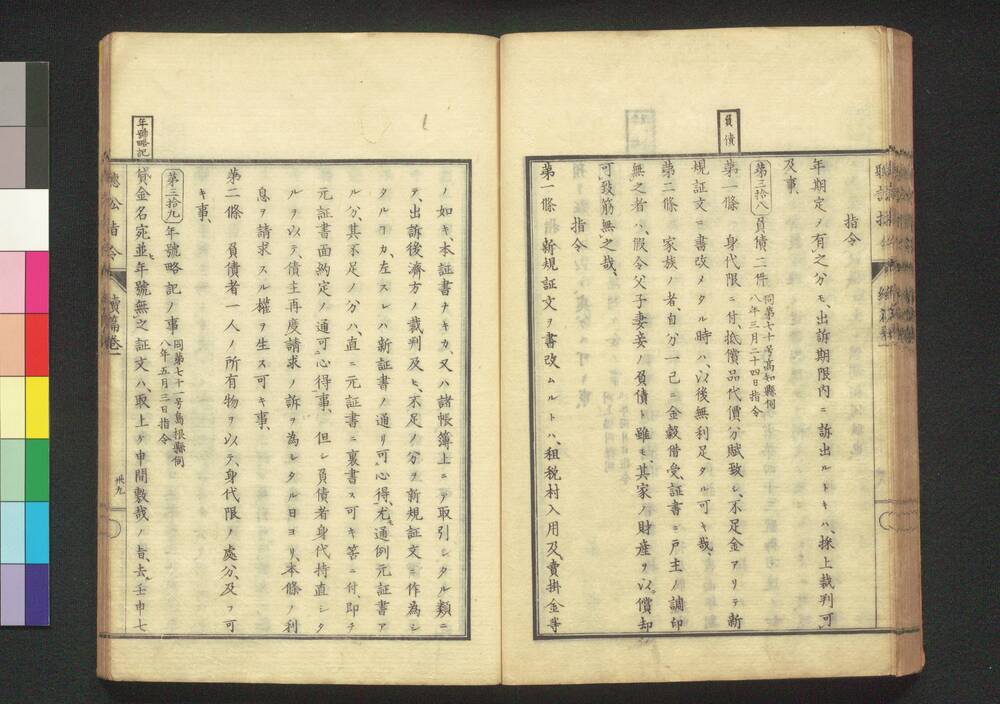 指令
年期定ノ有之分モ、出訴期限内ニ訴出ルトキハ、採上裁判可
及事、
負債
第三拾八 負債二件 同第七十号高知縣伺 八年三月二十四日指令
第一條 身代限ニ付、抵償品代價分賦致シ、不足金アリテ新
規証文ニ書改メタル時ハ、以後無利足タル可キ哉、
第二條 家族ノ者、自分一己ニ金穀借受、証書ニ戸主ノ調印
無之者ハ、假令父子妻妾ノ負債ト雖モ、其家ノ財産ヲ以、償却
可致筋無之哉、
指令
第一條 新規証文ヲ書改ムルトハ、租税村入用及、賣掛金等
ノ如キ、本証書ナキカ、又ハ諸帳簿上ニテ取引シタル類ニ
テ、出訴後濟方ノ裁判及ヒ、不足ノ分ヲ新規証文ニ作為シ
タルコカ、左スレハ新証書ノ通リ可心得、尤通例元証書ア
ル分、其不足ノ分ハ、直ニ元証書ニ裏書ス可キ筈ニ付、即チ
元証書面約定ノ通可心得事、但シ負債者身代持直シタ
ルヲ以テ、債主再度請求ノ訴ヲ為シタル日ヨリ、本條ノ利
息ヲ請求スルノ權ヲ生ス可キ事、
第二條 負債者一人ノ所有物ヲ以テ、身代限ノ處分、及フ可
キ事、
年號略記
第三拾九 年號略記ノ事 同第七十一号島根縣伺 八年五月二日指令
貸金名宛並年號無之証文ハ、取上ケ申間敷哉ノ旨、去、壬申七
聴訟指令 續篇巻一
卅九